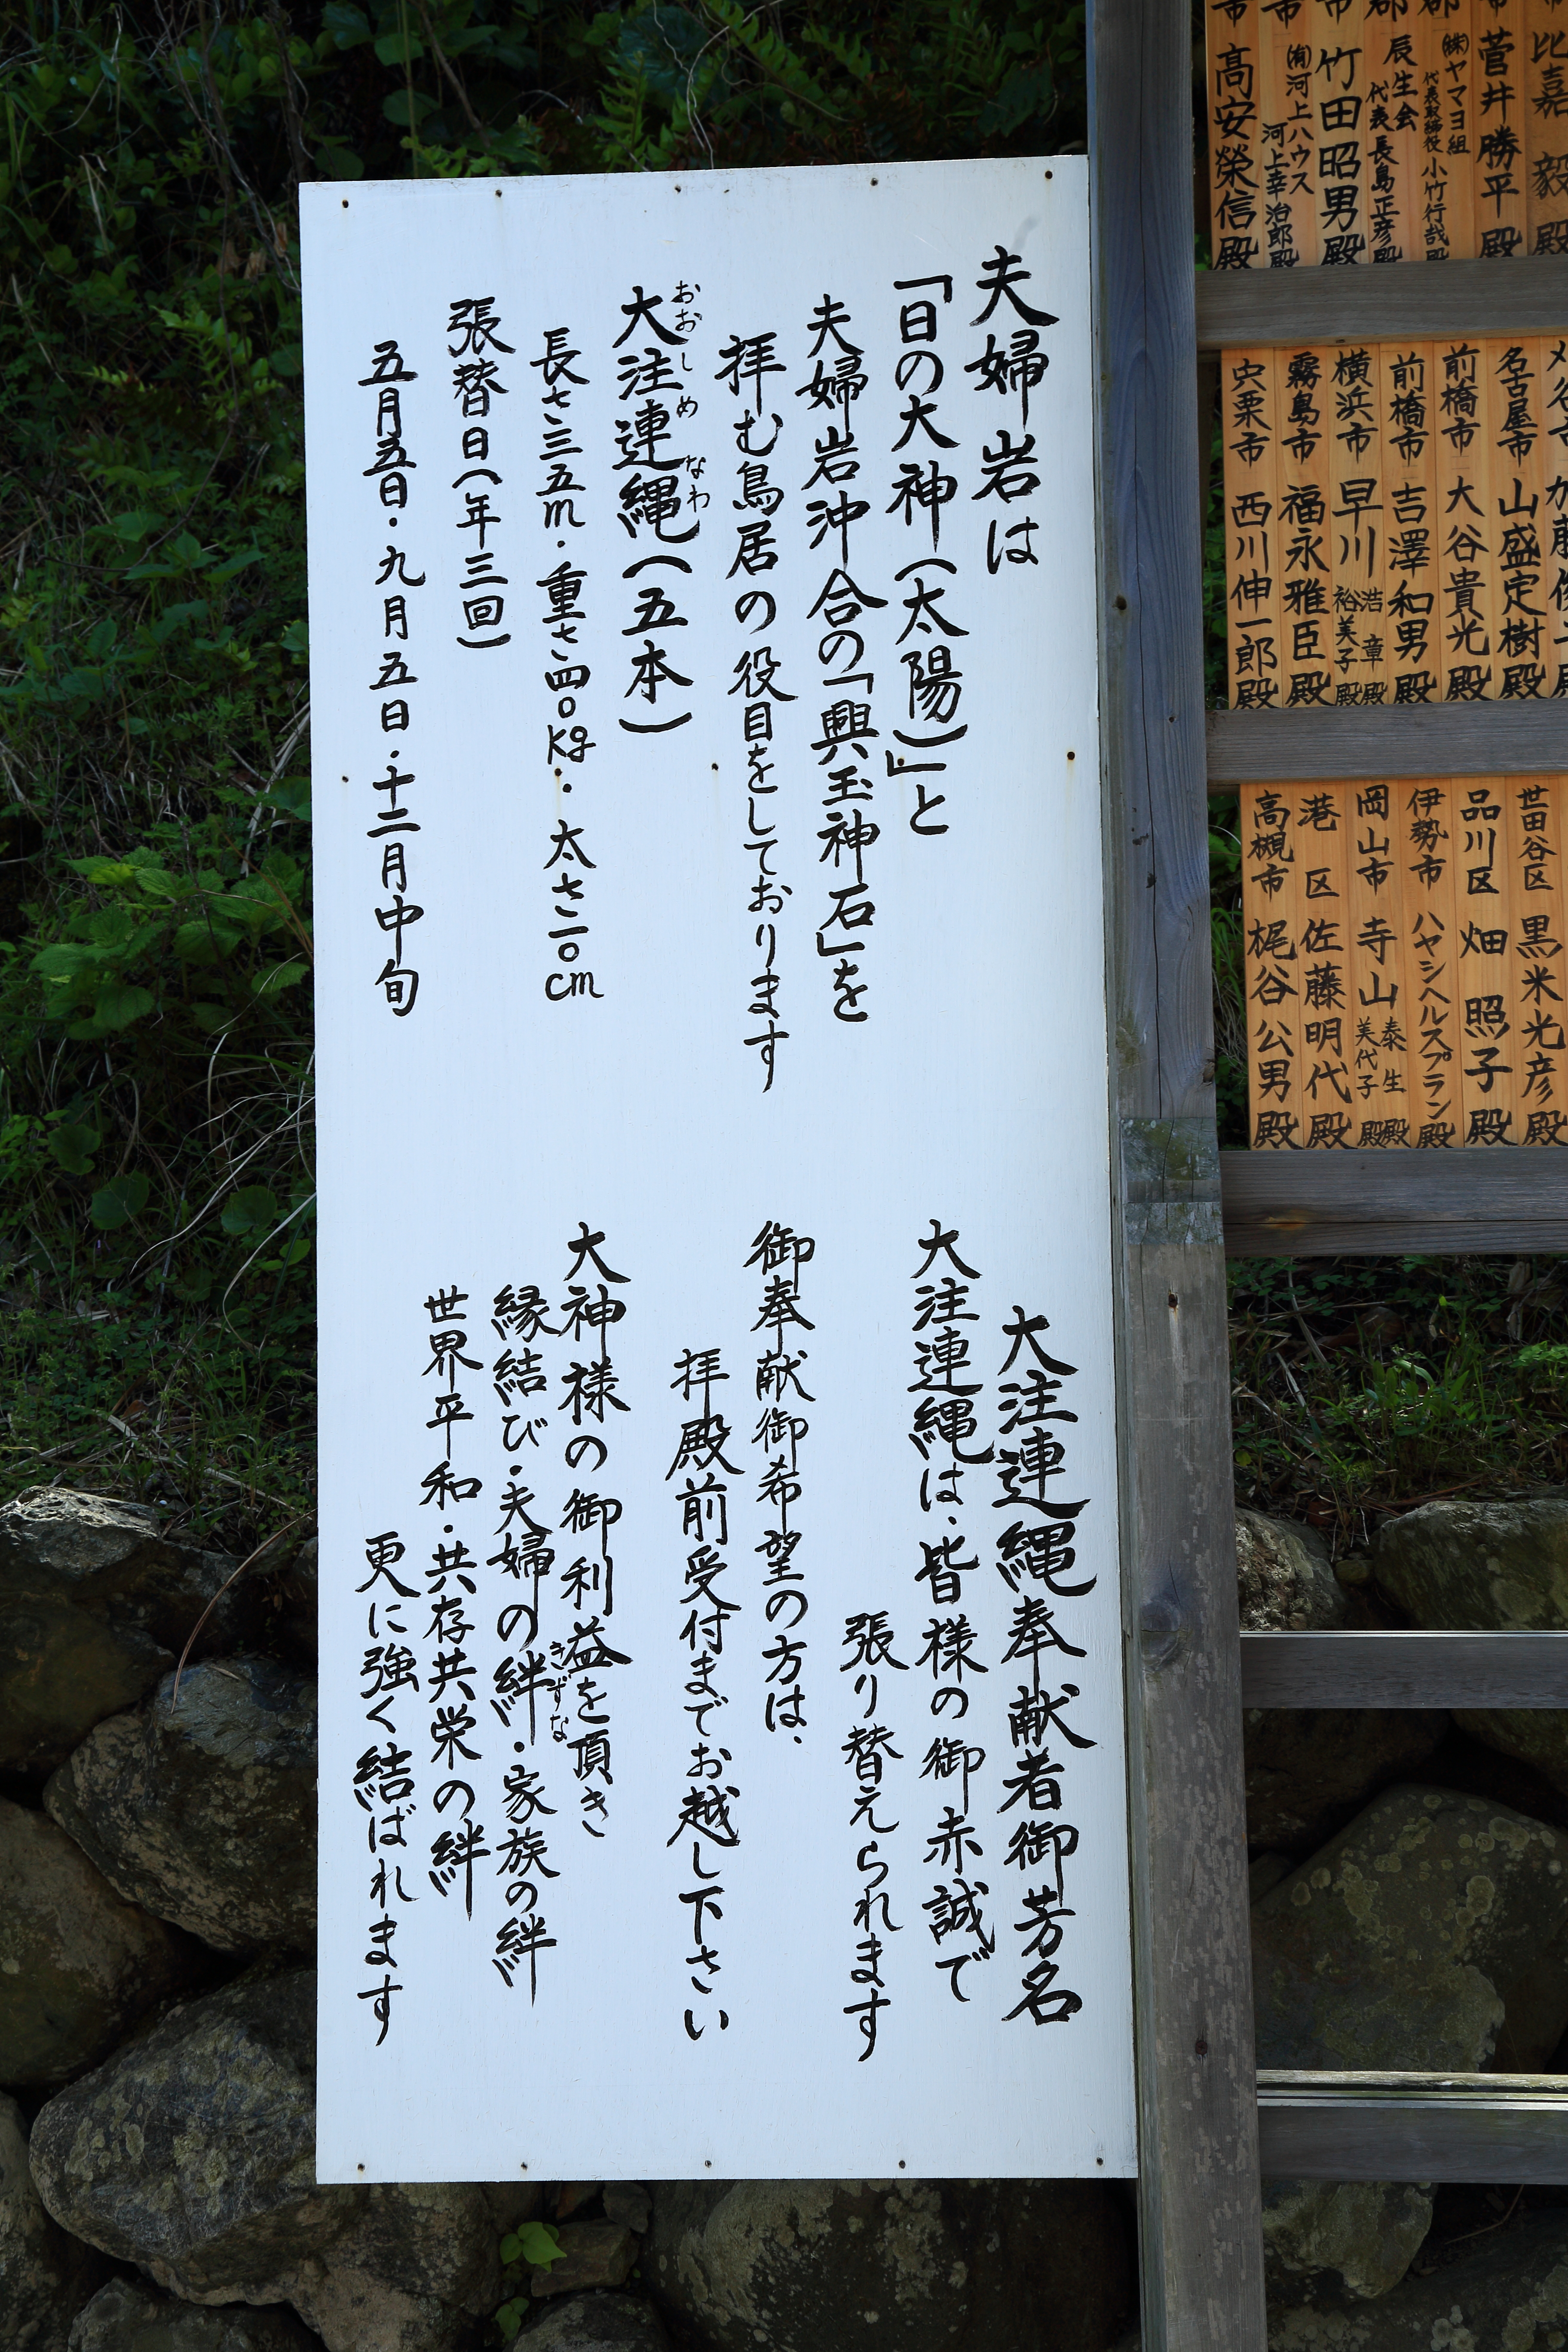 夫婦岩は
「日の大神(太陽)」と
夫婦岩沖合の「興玉神石」を
拝む鳥居の役目をしております
大注連縄(五本)
おおしめなわ
長さ三五m・重さ四〇kg・太さ二〇cm
張替日(年三回)
五月五日・九月五日・十二月中旬
大注連縄奉献者御芳名
大注連縄は、皆様の御赤誠で
張り替えられます
御奉献御希望の方は、
拝殿前受付までお越し下さい
大神様の御利益を頂き
縁結び・夫婦の絆・家族の絆
きずな
世界平和・共存共栄の絆
更に強く結ばれます
比嘉 毅殿
菅井勝平殿
㈱ヤマヨ組
代表取締役 小竹行哉殿
辰生会
代表長島正彦殿
竹田昭男殿
㈲河上ハウス
河上幸治郎殿
高安榮信殿
名古屋市 山盛定樹殿
前橋市 大谷貴光殿
前橋市 吉澤和男殿
横浜市 早川 浩章殿
裕美子殿
霧島市 福永雅臣殿
宍粟市 西川伸一郎殿
世田谷区 黒米光彦殿
品川区 畑 照子殿
伊勢市 ハヤシヘルスプラン殿
岡山市 寺山 泰生殿
美代子殿
港区 佐藤明代殿
高槻市 梶谷公男殿